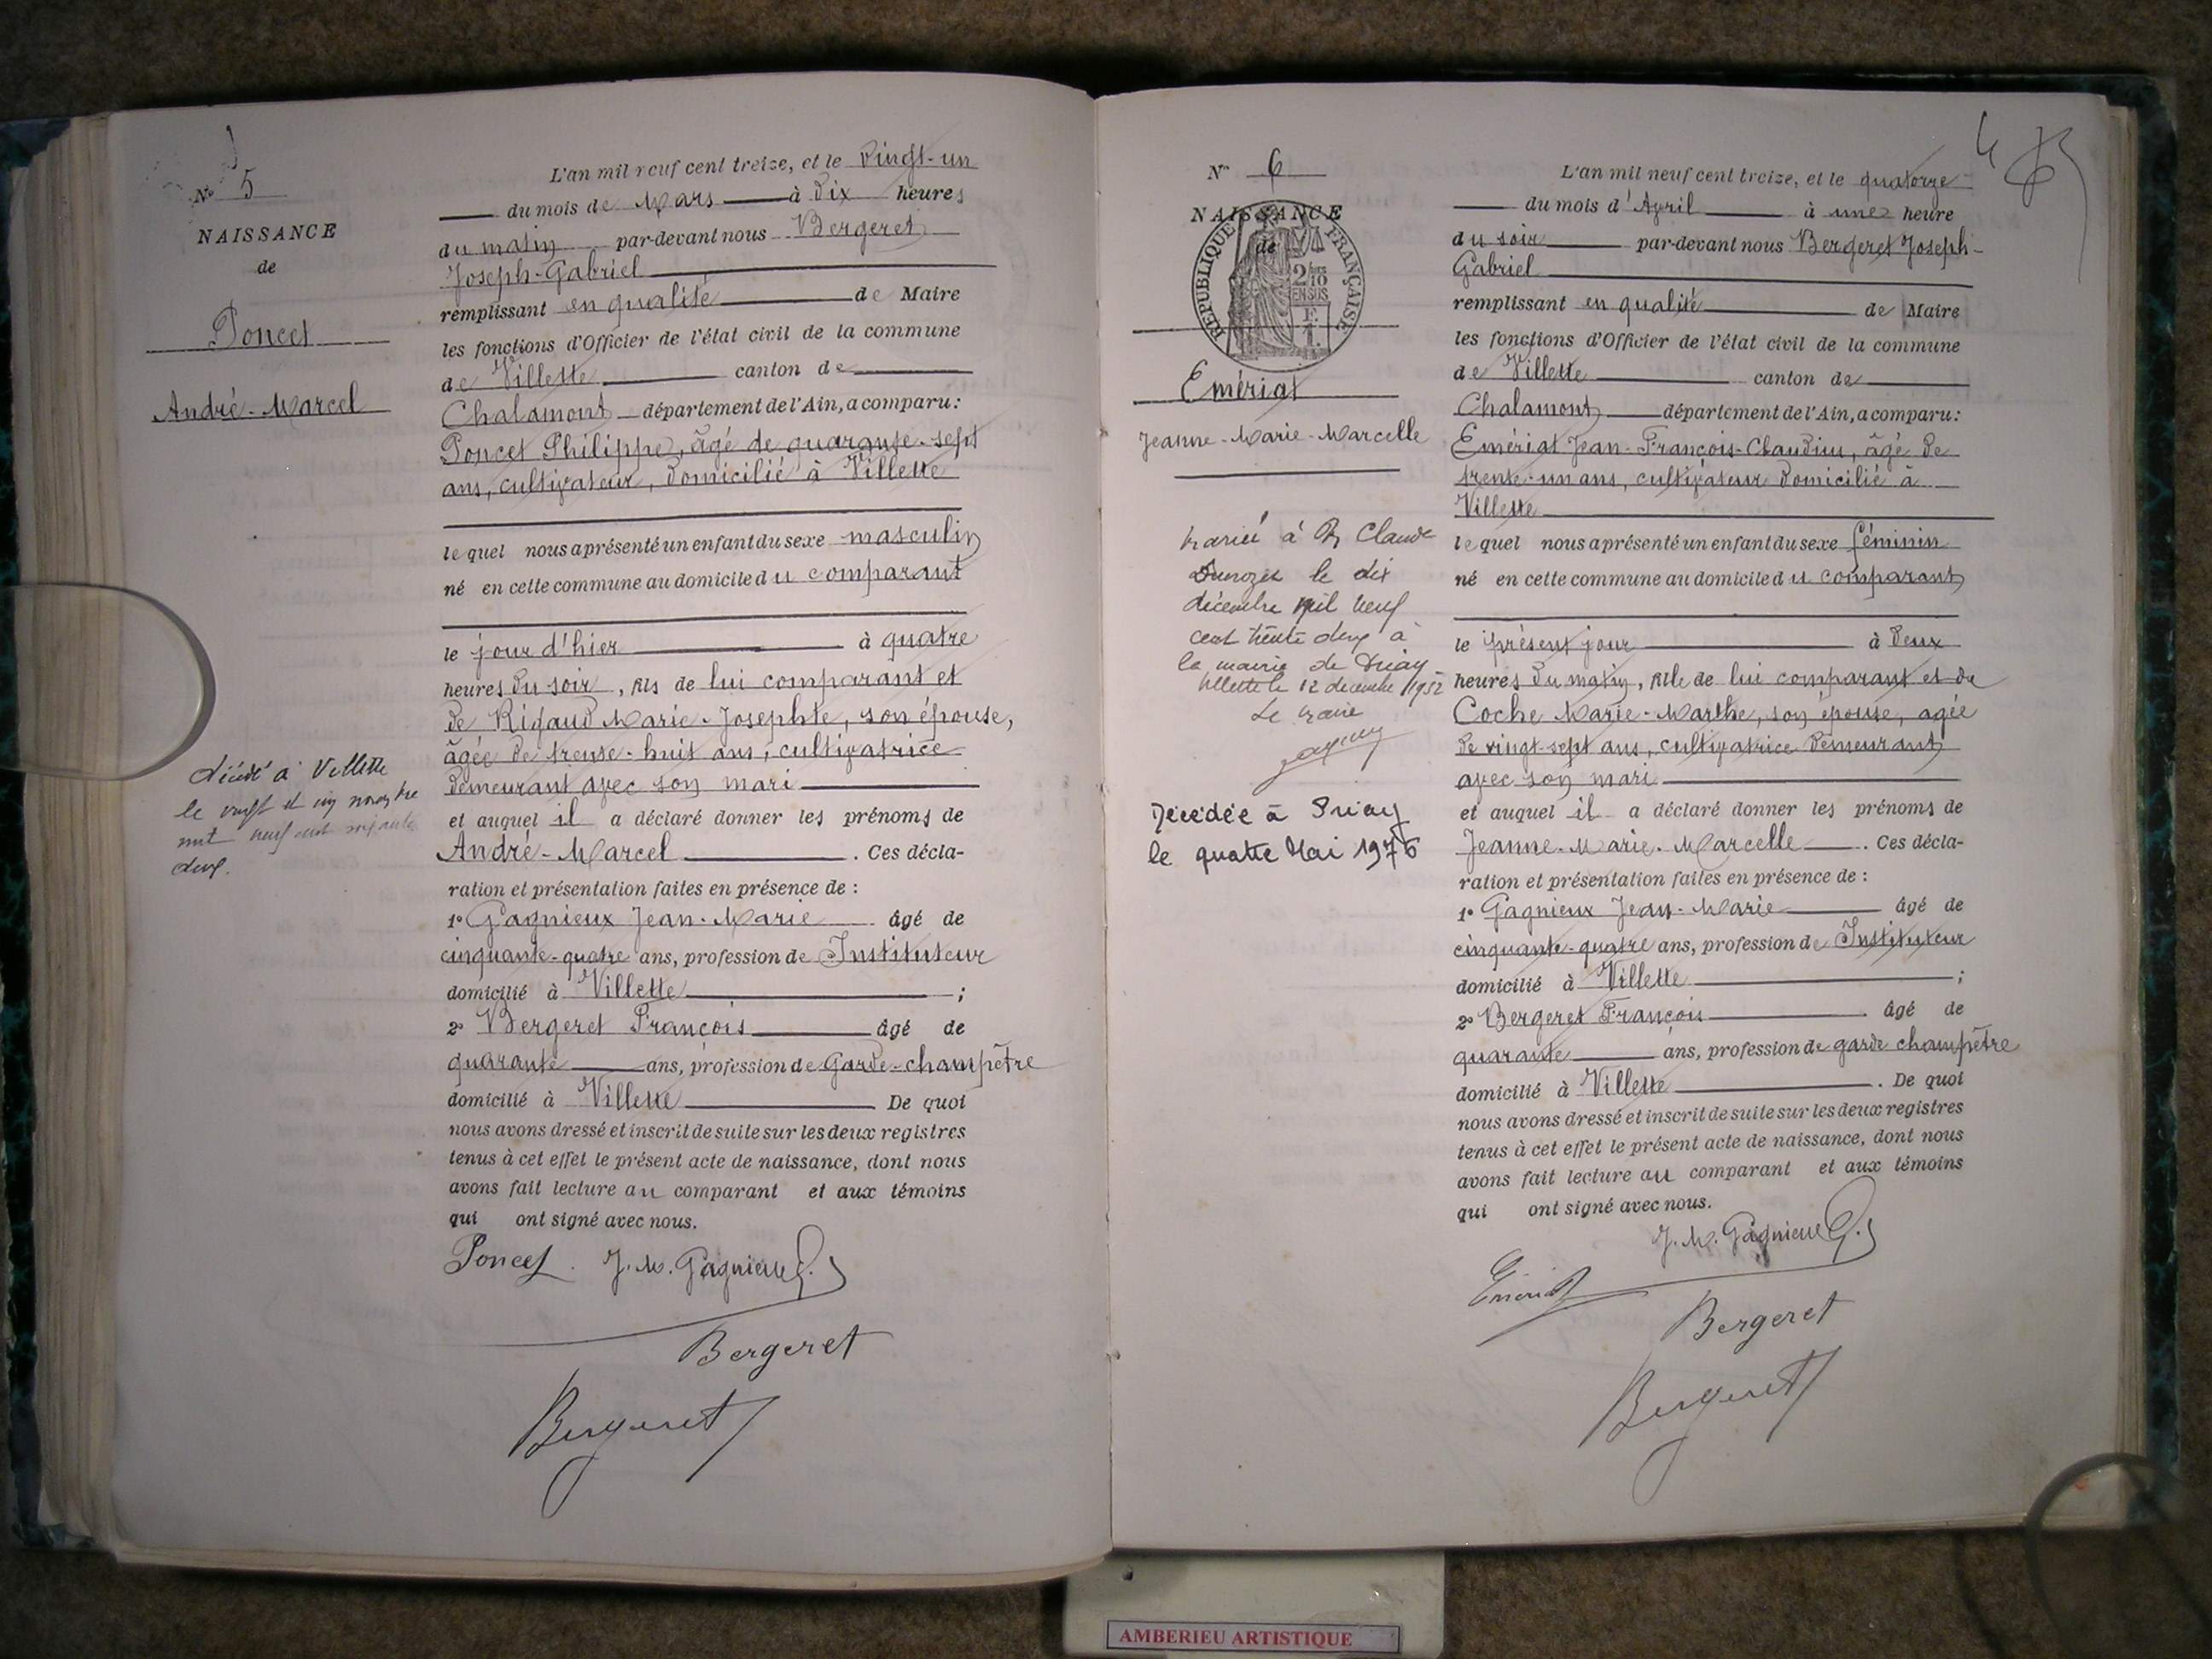 N° 5
NAISSANCE
de
Poncet
André-Marcel
décédé à Villette
le vingt et un novembre
mil neuf cent soixante
deux.
L'an mil neuf cent treize, et le vingt-un
du mois de Mars à dix heures
du matin par-devant nous Bergeret
Joseph-Gabriel
remplissant en qualité de Maire
les fonctions d'Officier de l'état civil de la commune
de Villette canton de
Chalamont département de l'Ain, a comparu :
Poncet Philippe, âgé de quarante-sept
ans, cultivateur, domicilié à Villette
lequel nous a présenté un enfant du sexe masculin
né en cette commune au domicile du comparant
le jour d'hier à quatre
heures du soir, fils de lui comparant et
de Rigaud Marie-Josephte, son épouse,
âgée de trente-huit ans, cultivatrice
demeurant avec son mari
et auquel il a déclaré donner les prénoms de
André-Marcel. Ces décla-
ration et présentation faites en présence de :
1° Gagnieux Jean-Marie âgé de
cinquante-quatre ans, profession de Instituteur
domicilié à Villette ;
2° Bergeret François âgé de
quarante ans, profession de Garde-champêtre
domicilié à Villette De quoi
nous avons dressé et inscrit de suite sur les deux registres
tenus à cet effet le présent acte de naissance, dont nous
avons fait lecture au comparant et aux témoins
qui ont signé avec nous.
Poncet. J. M. Gagnieux
Bergeret
Bergeret
N° 6
NAISSANCE
de
RÉPUBLIQUE FRANÇAISE
2/10
EN SUS
Emériat
Jeanne-Marie-Marcelle
mariée à Claude
le dix
décembre mil neuf
cent trente deux à
la mairie de Priay
Villette le 12 décembre 1932
Le maire
Décédée à Priay
le quatre Mai 1976
4
L'an mil neuf cent treize, et le quatorze
du mois d'Avril à une heure
du soir par-devant nous Bergeret Joseph-
Gabriel
remplissant en qualité de Maire
les fonctions d'Officier de l'état civil de la commune
de Villette canton de
Chalamont département de l'Ain, a comparu :
Emériat Jean-François-Claudius, âgé de
trente-un ans, cultivateur domicilié à
Villette
lequel nous a présenté un enfant du sexe féminin
né en cette commune au domicile du comparant
le présent jour à deux
heures du matin, fille de lui comparant et de
Coche Marie-Marthe, son épouse, agée
de vingt-sept ans, cultivatrice demeurant
avec son mari
et auquel il a déclaré donner les prénoms de
Jeanne-Marie-Marcelle. Ces décla-
ration et présentation faites en présence de :
1° Gagnieux Jean-Marie âgé de
cinquante-quatre ans, profession de Instituteur
domicilié à Villette ;
2° Bergeret François âgé de
quarante ans, profession de garde champêtre
domicilié à Villette. De quoi
nous avons dressé et inscrit de suite sur les deux registres
tenus à cet effet le présent acte de naissance, dont nous
avons fait lecture au comparant et aux témoins
qui ont signé avec nous.
J. M. Gagnieux
Emériat
Bergeret
Bergeret
AMBERIEU ARTISTIQUE